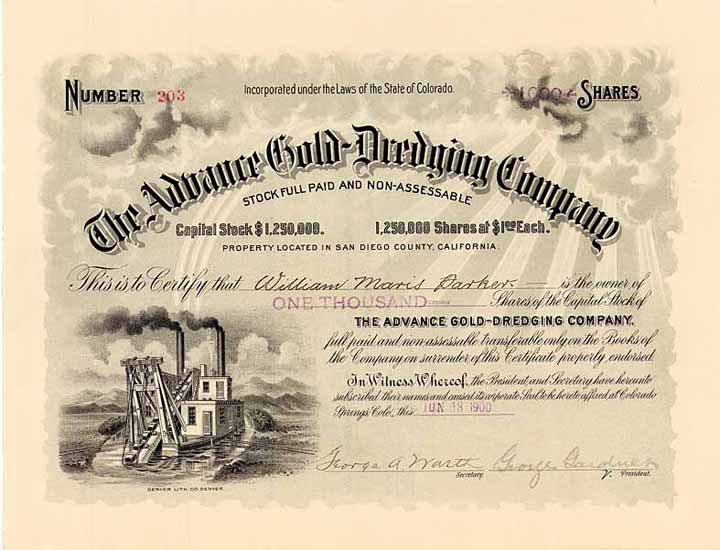 NUMBER 203
Incorporated under the Laws of the State of Colorado.
1000 SHARES
The Advance Gold-Dredging Company
STOCK FULL PAID AND NON-ASSESSABLE
Capital Stock $1,250,000. 1,250,000 Shares at $1.00 Each.
PROPERTY LOCATED IN SAN DIEGO COUNTY, CALIFORNIA.
This is to Certify that William Maris Parker. is the owner of
ONE THOUSAND Shares of the Capital Stock of
THE ADVANCE GOLD-DREDGING COMPANY.
full paid and non-assessable transferable only on the Books of
the Company on surrender of this Certificate properly endorsed.
In Witness Whereof, the President and Secretary have hereunto
subscribed their names and caused its corporate Seal to be hereto affixed at Colorado
Springs Colo., this JUN 1900
George A. Warth George Gardner
Secretary. V. President.
DENVER LITH. CO. DENVER.